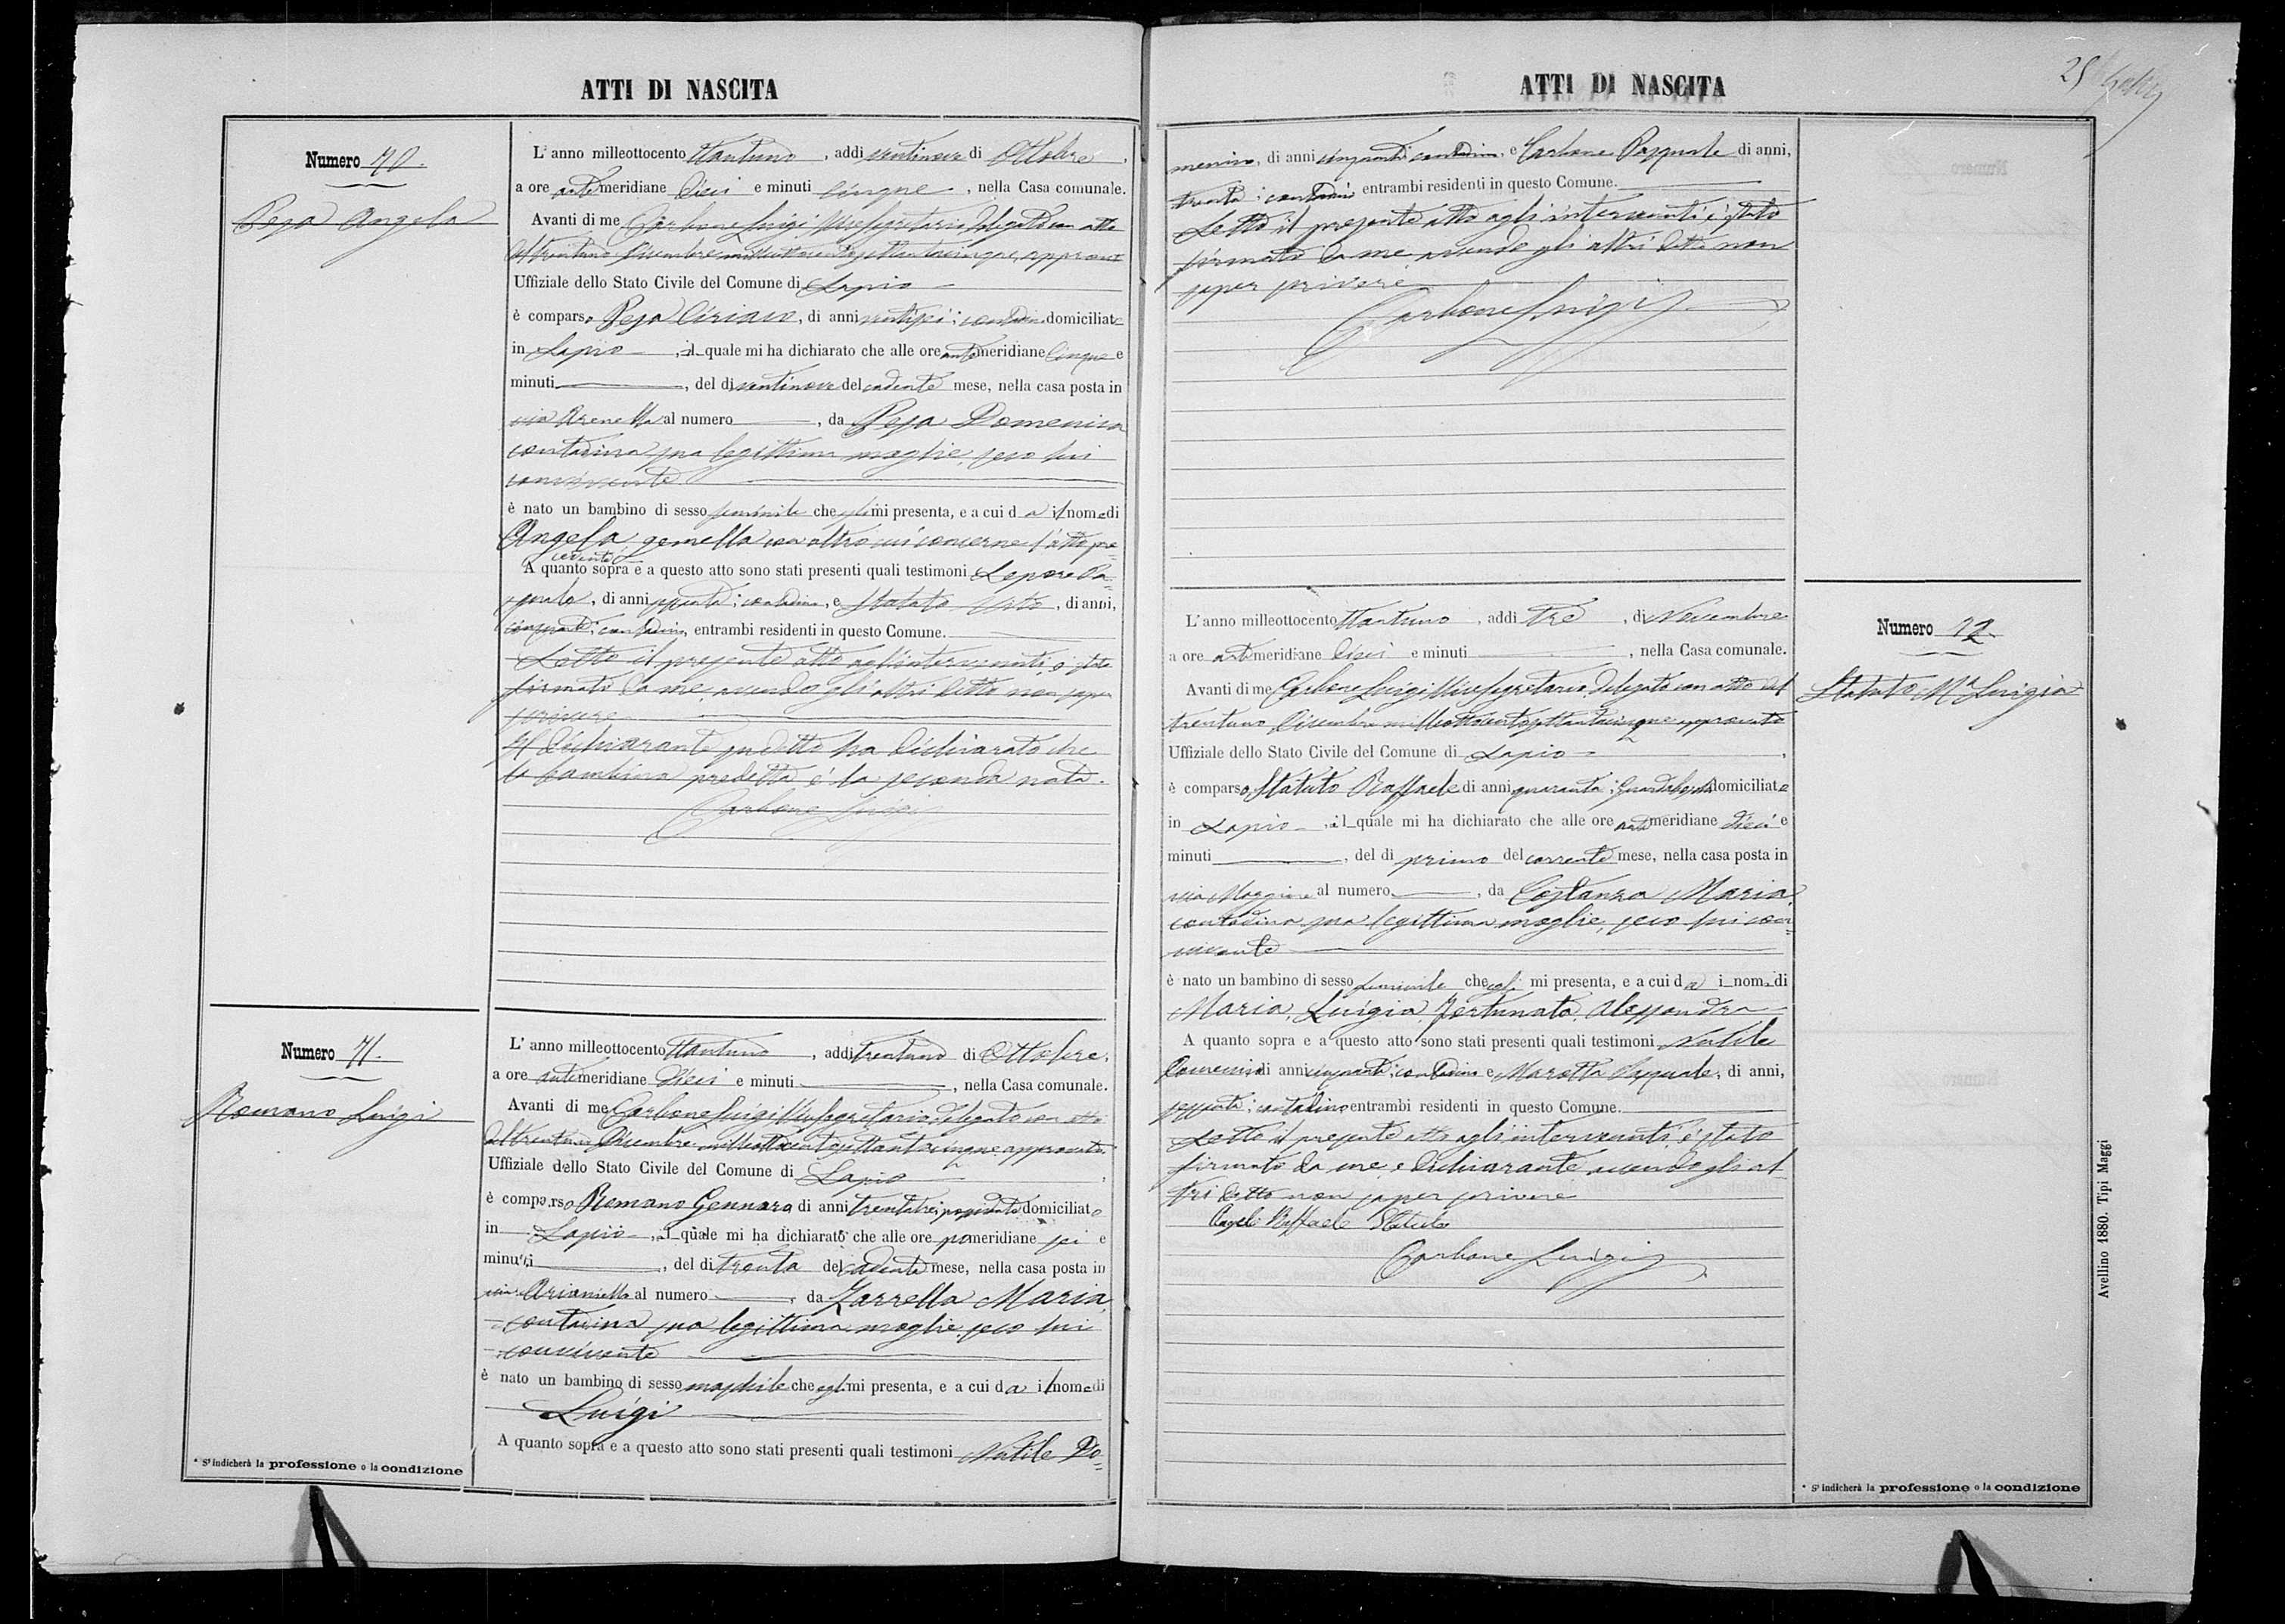 ATTI DI NASCITA
Numero 70.
Pesa Angela
L'anno milleottocento ottantuno, addi ventinove di Ottobre,
a ore antimeridiane dieci e minuti cinque, nella Casa comunale.
Avanti di me Carbone Luigi Vice Segretario delegato con atto
del trentuno Dicembre milleottocentosettantacinque, approvato
Uffiziale dello Stato Civile del Comune di Lapio
è comparso Pesa Ciriaco, di anni ventisei; contadino domiciliato
in Lapio, il quale mi ha dichiarato che alle ore antimeridiane cinque e
minuti, del di ventinove del cadente mese, nella casa posta in
via Arenella al numero, da Pesa Domenica
contadina sua legittima moglie, seco lui
convivente
è nato un bambino di sesso feminile che egli mi presenta, e a cui da il nome di
Angela gemella con altro cui concerne l'atto pre=
cedente
A quanto sopra e a questo atto sono stati presenti quali testimoni Lepore Pa=
squale, di anni sessanta; contadino, e Statuto Vito, di anni,
cinquanta; contadino, entrambi residenti in questo Comune.
Letto il presente atto agl'intervenuti, è stato
firmato da me, avendo gli altri detto non saper
scrivere
Il dichiarante sudetto ha dichiarato che
la bambina predetta è la seconda nata.
Carbone Luigi
Numero 71.
Romano Luigi
L'anno milleottocento ottantuno, addi trentuno di Ottobre,
a ore antimeridiane dieci e minuti, nella Casa comunale.
Avanti di me Carbone Luigi Vice Segretario, delegato con atto
del trentuno Dicembre milleottocentosettantacinque approvato
Uffiziale dello Stato Civile del Comune di Lapio
è comparso Romano Gennaro di anni trentatre; possidente domiciliato
in Lapio, il quale mi ha dichiarato che alle ore pomeridiane sei e
minuti, del di trenta del cadente mese, nella casa posta in
via Arianiello al numero, da Zarrella Maria,
contadina sua legittima moglie, seco lui
convivente
è nato un bambino di sesso maschile che egli mi presenta, e a cui da il nome di
Luigi
A quanto sopra e a questo atto sono stati presenti quali testimoni Nutile Do=
* S'indicherà la professione o la condizione
ATTI DI NASCITA
25
menico, di anni cinquanta; contadino, e Carbone Pasquale di anni,
trenta; contadino entrambi residenti in questo Comune.
Letto il presente atto agli intervenuti è stato
firmato da me avendo gli altri detto non
saper scrivere
Carbone Luigi
Numero 72.
Statuto Mª Luigia
L'anno milleottocento ottantuno, addi tre, di Novembre
a ore antimeridiane dieci e minuti, nella Casa comunale.
Avanti di me Carbone Luigi Vice Segretario delegato con atto del
trentuno Dicembre milleottocentosettantacinque approvato
Uffiziale dello Stato Civile del Comune di Lapio
è comparso Statuto Raffaele di anni quaranta; Guardaboschi domiciliato
in Lapio, il quale mi ha dichiarato che alle ore antimeridiane dieci e
minuti, del di primo del corrente mese, nella casa posta in
via Maggiore al numero, da Costanza Maria,
contadina sua legittima moglie, seco lui con=
vivente
è nato un bambino di sesso feminile che egli mi presenta, e a cui da i nomi di
Maria, Luigia, Fortunata, Alessandra
A quanto sopra e a questo atto sono stati presenti quali testimoni Nutile
Domenico di anni cinquanta; contadino e Marotta Pasquale, di anni,
sessanta; contadino entrambi residenti in questo Comune.
Letto il presente atto agli intervenuti, è stato
firmato da me, e dichiarante avendo gli al
tri detto non saper scrivere
Raffaele Statuto
Carbone Luigi
* S'indicherà la professione o la condizione
Avellino 1880. Tipi Maggi